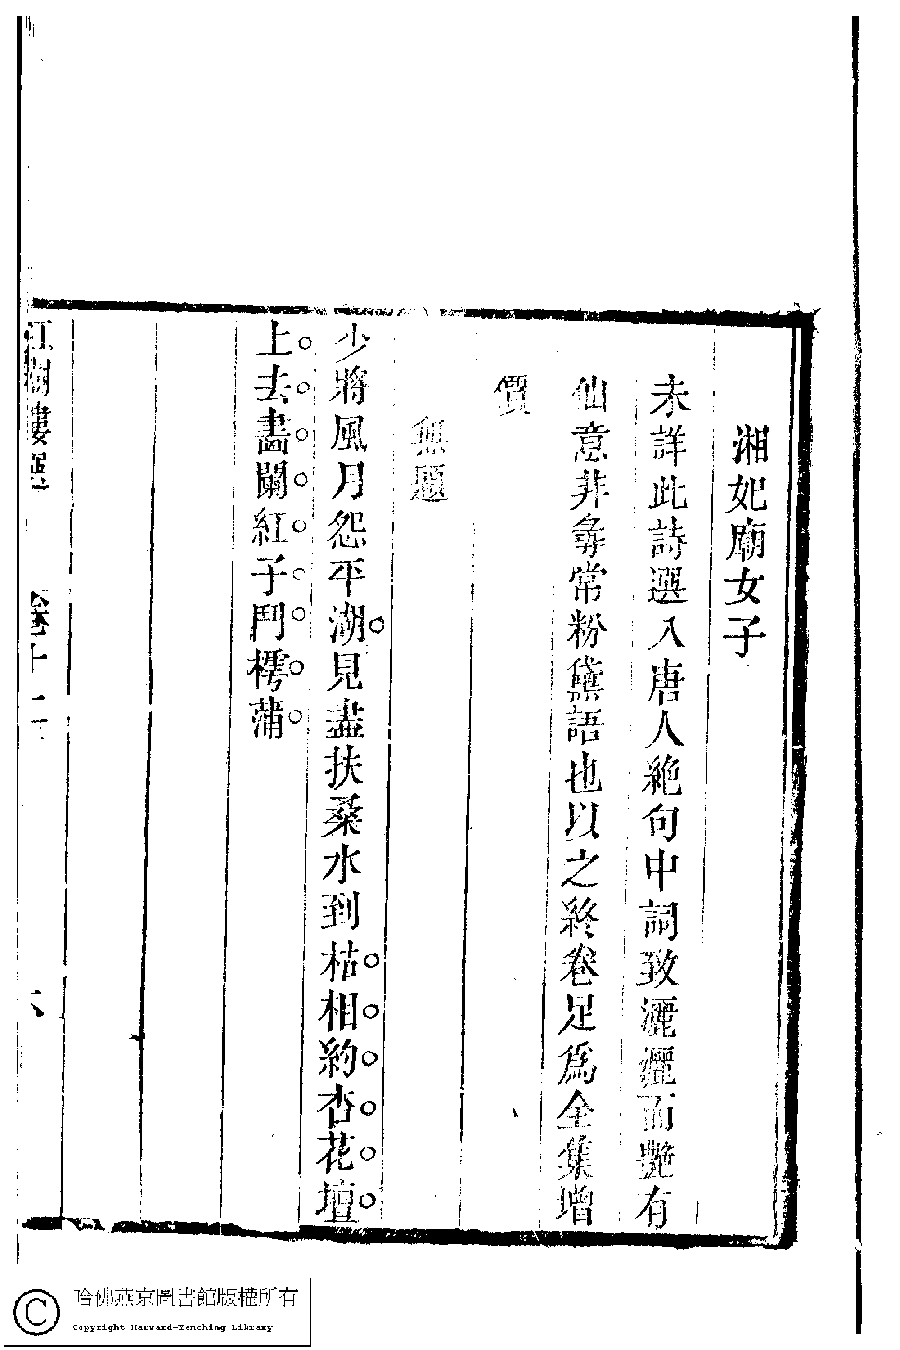 湘妃廟女子
未詳此詩選入唐人絶句中詞致灑纚而艷有
仙意非尋常粉黛語也以之終卷足爲全集增
價
無題
少將風月怨平湖見盡扶桑水到枯相約杏花壇
上去畵闌紅子鬥樗蒲
紅樹樓選
卷十二
六
哈佛燕京圖書館版權所有
Copyright Harvard-Yenching Library